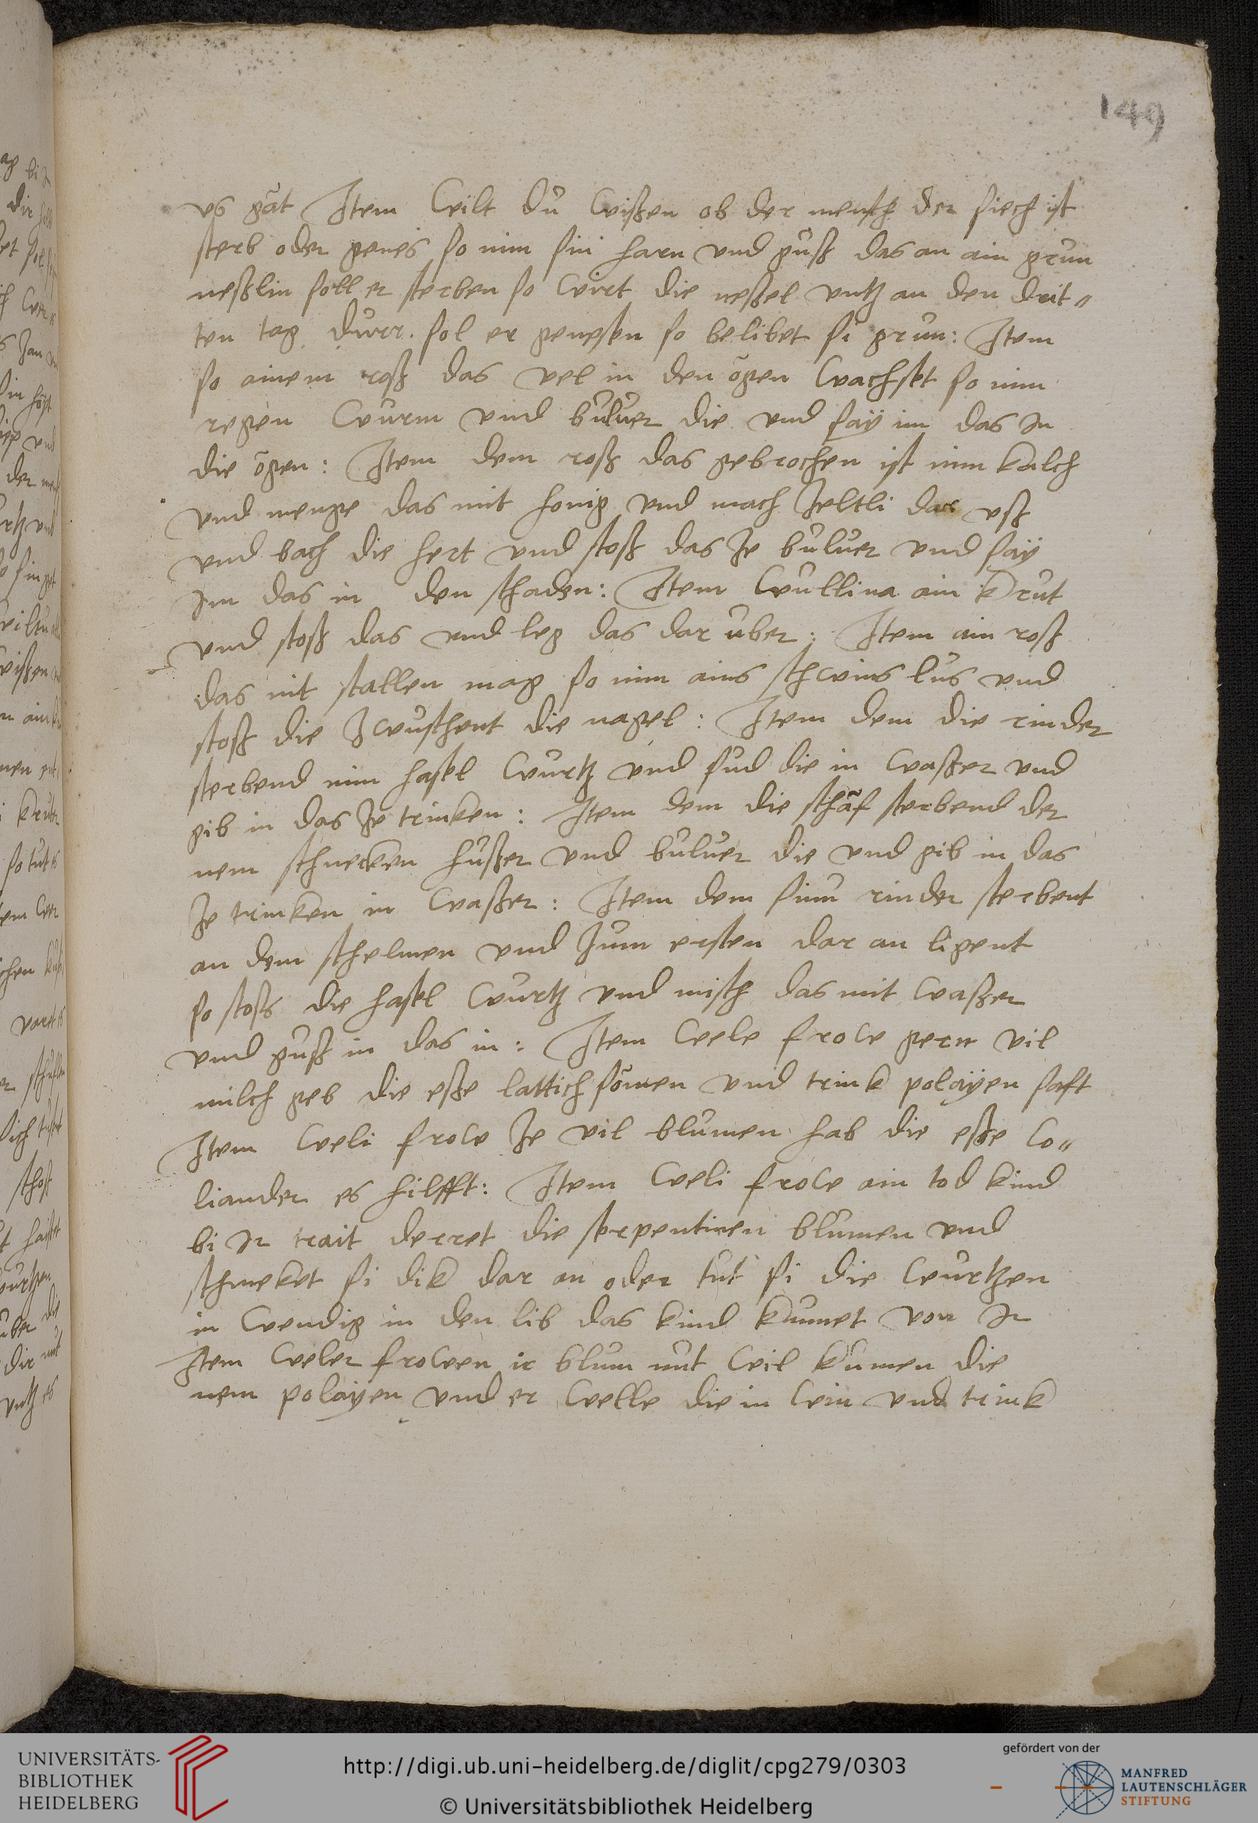 149
vs gat Item wilt du wißen ob der mensch der siech ist
sterb oder genes so nim sin harn vnd güß das an ain grun
neßlin soll er sterben so wirt die neßel vntz an den drit„
ten tag durr. sol er genesen so belibet si grun: Item
so ainem roß das vel in den ogen wachset so nim
regen wurm vnd buluer die vnd say im das in
die ogen: Item dem roß das gebrochen ist nim kalch
vnd menge das mit honig vnd mach zeltli dar vsß
vnd bach die hert vnd stoß das ze buluer vnd say
im das in den schaden: Item wullina ain krut
vnd stoß das vnd leg das dar uber: Item ain roß
das nit stallen mag so nim ains schwins lus vnd
stoß die zwuschent die nagel: Item dem die rinder
sterbend nim hasel wurtz vnd sud die in waßer vnd
gib in das ze trinken: Item dem die schaf sterbend der
nem schnecken hußer vnd buluer die vnd gib in das
ze trinken in waßer: Item dem sinu rinder sterbent
an dem schelmen vnd zum ersten dar an ligent
so stoß die hasel wurtz vnd misch das mit waßer
vnd guß in das in: Item wele frow gern vil
milch geb die eße lattich somen vnd trink polayen saft
Item weli frow ze vil blumen hab die eße co„
liander es hilfft: Item weli frow ain tod kind
bi ir trait derret die serpentinen blumen vnd
schmeket si dik dar an oder tut si die wurtzen
in wendig in den lib das kind kumet von ir
Item weler frowen ir blum nut wil kumen die
nem polayen vnd er welle die in win vnd trink
UNIVERSITÄTS-
BIBLIOTHEK
HEIDELBERG
http://digi.ub.uni-heidelberg.de/diglit/cpg279/0303
© Universitätsbibliothek Heidelberg
gefördert von der
MANFRED
LAUTENSCHLÄGER
STIFTUNG